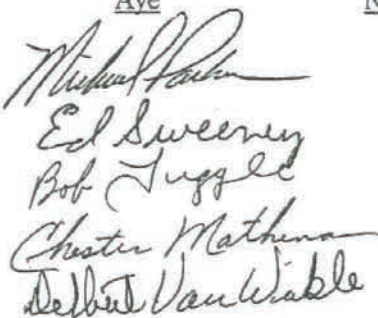 Aye N
Michael Parker
Ed Sweeney
Bob Tuggle
Chester Mathena
Delbert Van Winkle